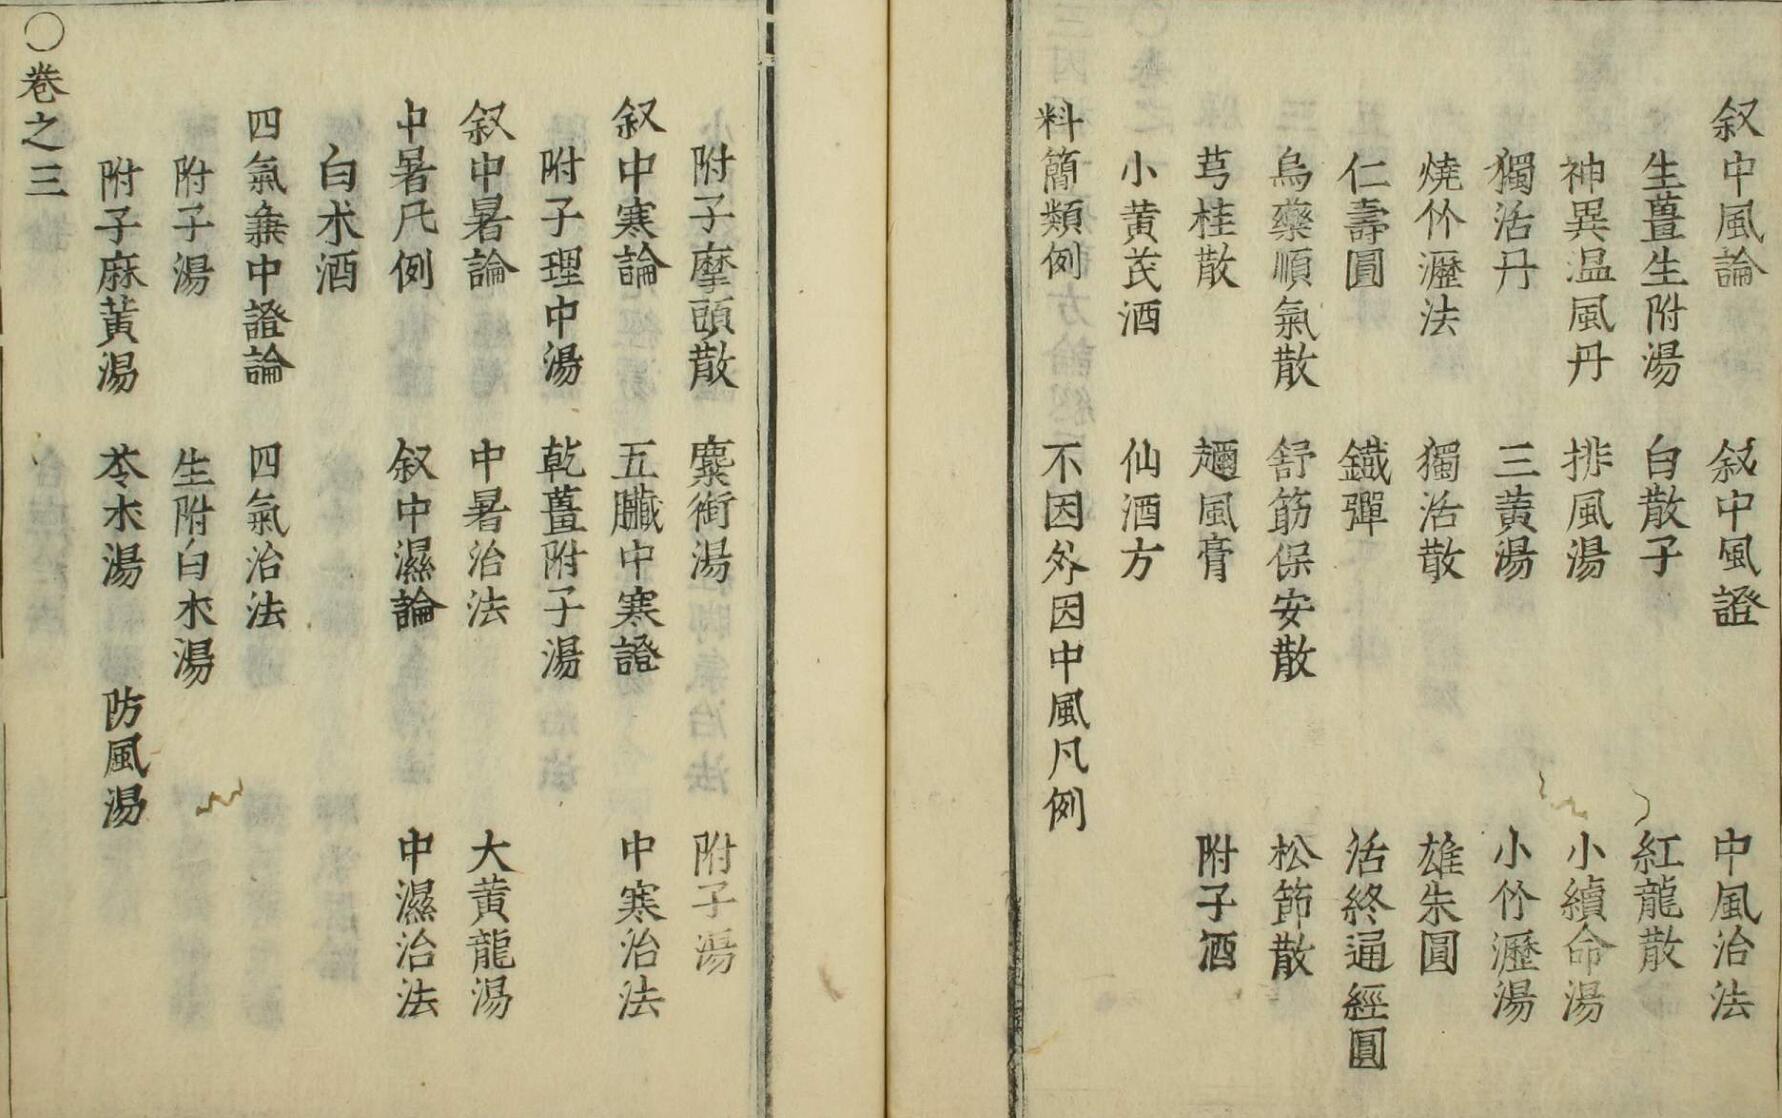 叙中風論　叙中風證　中風治法
生薑生附湯　白散子　紅龍散
神異温風丹　排風湯　小續命湯
獨活丹　三黄湯　小竹瀝湯
燒竹瀝法　獨活散　雄朱圓
仁壽圓　鐵彈　活終通經圓
烏藥順氣散　舒筋保安散　松節散
芎桂散　趰風膏　附子酒
小黄茂酒　仙酒方
料簡類例　不因外因中風凡例
附子摩頭散　麋銜湯　附子湯
叙中寒論　五臟中寒證　中寒治法
附子理中湯　乾薑附子湯
叙中暑論　中暑治法　大黄龍湯
中暑凡例　叙中濕論　中濕治法
白术酒
四氣兼中證論　四氣治法
附子湯　生附白术湯
附子麻黄湯　苓术湯　防風湯
〇卷之三